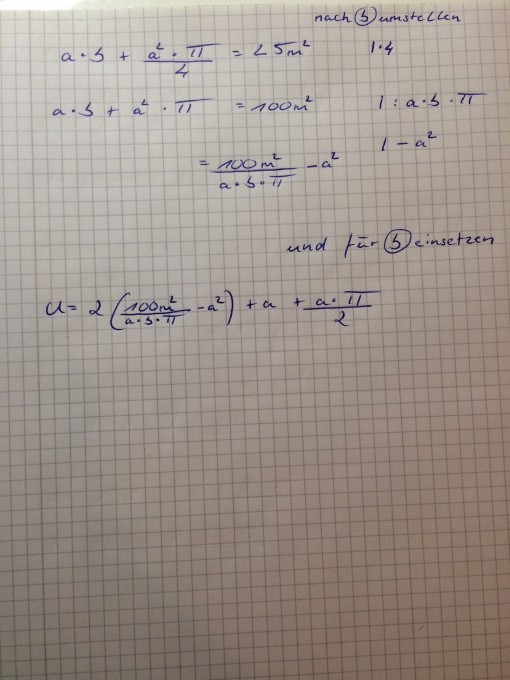 nach b umstellen
a · b + a² · π / 4 = 25m² | · 4
a · b + a² · π = 100m² | : a · b · π
= 100m² / a · b · π - a² | - a²
und für b einsetzen
U = 2 (100m² / a · b · π - a²) + a + a · π / 2